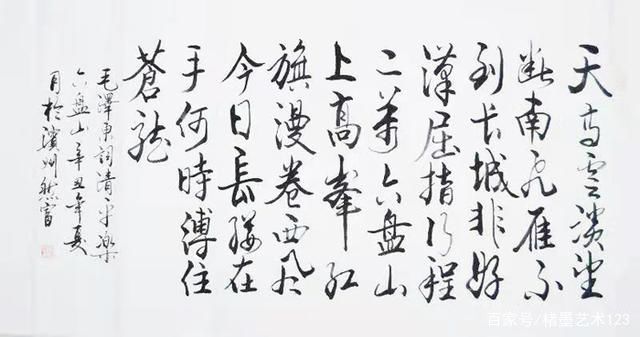 天高雲淡望
断南飞雁不
到长城非好
漢屈指行程
二萬六盘山
上高峯红
旗漫卷西风
今日長纓在
手何時縛住
蒼龍
毛澤東詞清平樂
六盘山辛丑年夏
月於濱州
百家号/墨艺术123